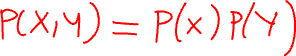 P(X,Y) = P(x) P(Y)